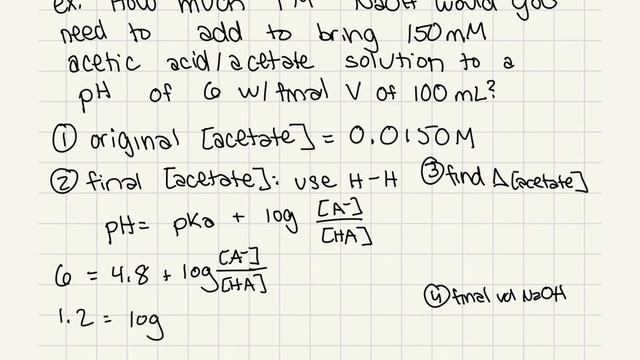 ex. How much 1M NaOH would you
need to add to bring 150mM
acetic acid/acetate solution to a
pH of 6 w/ final V of 100 mL?
① original [acetate] = 0.0150M
② final [acetate]: use H-H
③ find Δ[acetate]
pH = pKa + log [A⁻]/[HA]
6 = 4.8 + log [A⁻]/[HA]
④ final vol NaOH
1.2 = log